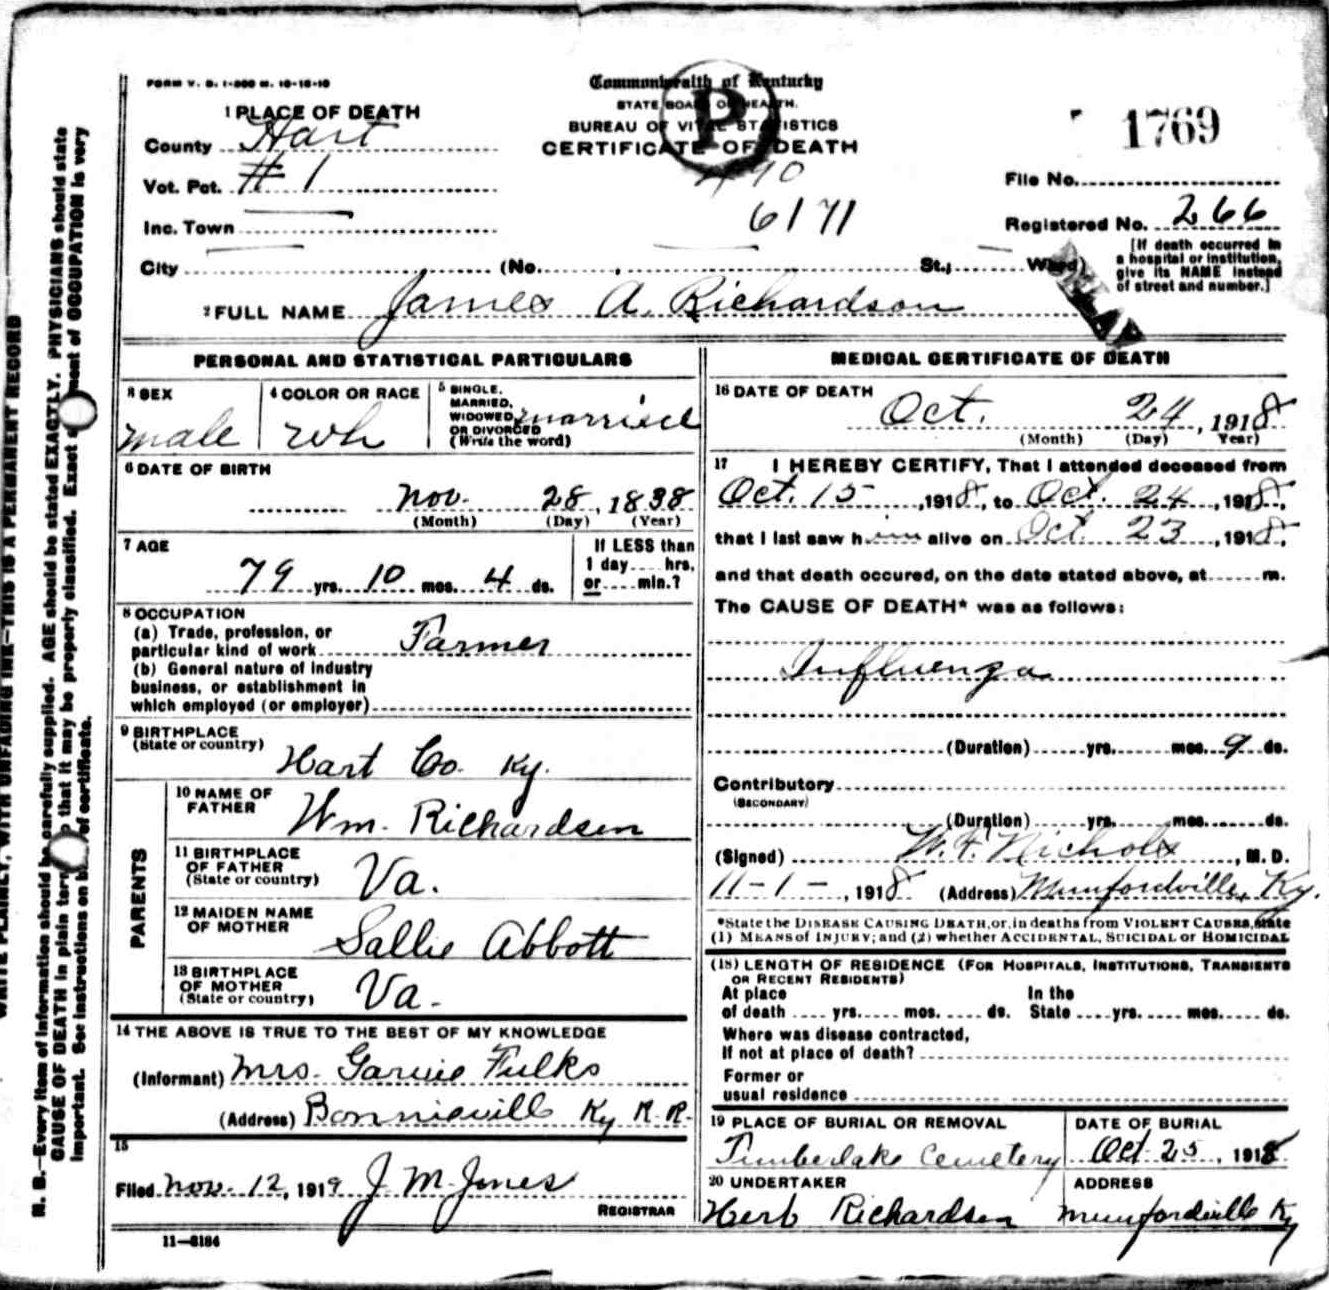 FORM V. S. 1-300 M. 10-18-10
Commonwealth of Kentucky
STATE BOARD OF HEALTH.
BUREAU OF VITAL STATISTICS
CERTIFICATE OF DEATH
P
1769
6171
File No.
Registered No. 266
[If death occurred in a hospital or institution, give its NAME instead of street and number.]
1 PLACE OF DEATH
County Hart
Vot. Pct. # 1
Inc. Town
City (No. , St.; Ward)
2 FULL NAME James A. Richardson
PERSONAL AND STATISTICAL PARTICULARS
3 SEX
male
4 COLOR OR RACE
wh
5 SINGLE, MARRIED, WIDOWED OR DIVORCED (Write the word)
married
6 DATE OF BIRTH
Nov. 28, 1838
(Month) (Day) (Year)
7 AGE
79 yrs. 10 mos. 4 ds.
If LESS than 1 day.... hrs, or.... min.?
8 OCCUPATION
(a) Trade, profession, or particular kind of work Farmer
(b) General nature of industry business, or establishment in which employed (or employer)
9 BIRTHPLACE
(State or country) Hart Co. Ky.
PARENTS
10 NAME OF FATHER Wm. Richardson
11 BIRTHPLACE OF FATHER (State or country) Va.
12 MAIDEN NAME OF MOTHER Sallie Abbott
13 BIRTHPLACE OF MOTHER (State or country) Va.
14 THE ABOVE IS TRUE TO THE BEST OF MY KNOWLEDGE
(Informant) Mrs. Fulks
(Address) Bonnieville Ky R.R.
15
Filed Nov. 12, 1919 J M Jones
REGISTRAR
11-8184
MEDICAL CERTIFICATE OF DEATH
16 DATE OF DEATH
Oct. 24, 1918
(Month) (Day) Year)
17 I HEREBY CERTIFY, That I attended deceased from
Oct. 15, 1918, to Oct. 24, 1918,
that I last saw him alive on Oct. 23, 1918,
and that death occured, on the date stated above, at m.
The CAUSE OF DEATH* was as follows:
Influenza
(Duration) yrs. mos. 9 ds.
Contributory
(SECONDARY)
(Duration) yrs. mos. ds.
(Signed) W. F. Nichols, M. D.
11-1-, 1918 (Address) Munfordville, Ky.
*State the DISEASE CAUSING DEATH, or, in deaths from VIOLENT CAUSES, state
(1) MEANS of INJURY; and (2) whether ACCIDENTAL, SUICIDAL or HOMICIDAL
(18) LENGTH OF RESIDENCE (FOR HOSPITALS, INSTITUTIONS, TRANSIENTS OR RECENT RESIDENTS)
At place of death .... yrs. .... mos. .... ds. In the State .... yrs. .... mos. .... ds.
Where was disease contracted,
If not at place of death?
Former or
usual residence
19 PLACE OF BURIAL OR REMOVAL
Timberlake Cemetery
DATE OF BURIAL
Oct 25, 1918
20 UNDERTAKER
Herb Richardson
ADDRESS
Munfordville Ky
WRITE PLAINLY, WITH UNFADING INK—THIS IS A PERMANENT RECORD
N. B.—Every item of information should be carefully supplied. AGE should be stated EXACTLY. PHYSICIANS should state
CAUSE OF DEATH in plain terms that it may be properly classified. Exact statement of OCCUPATION is very
important. See instructions on back of certificate.